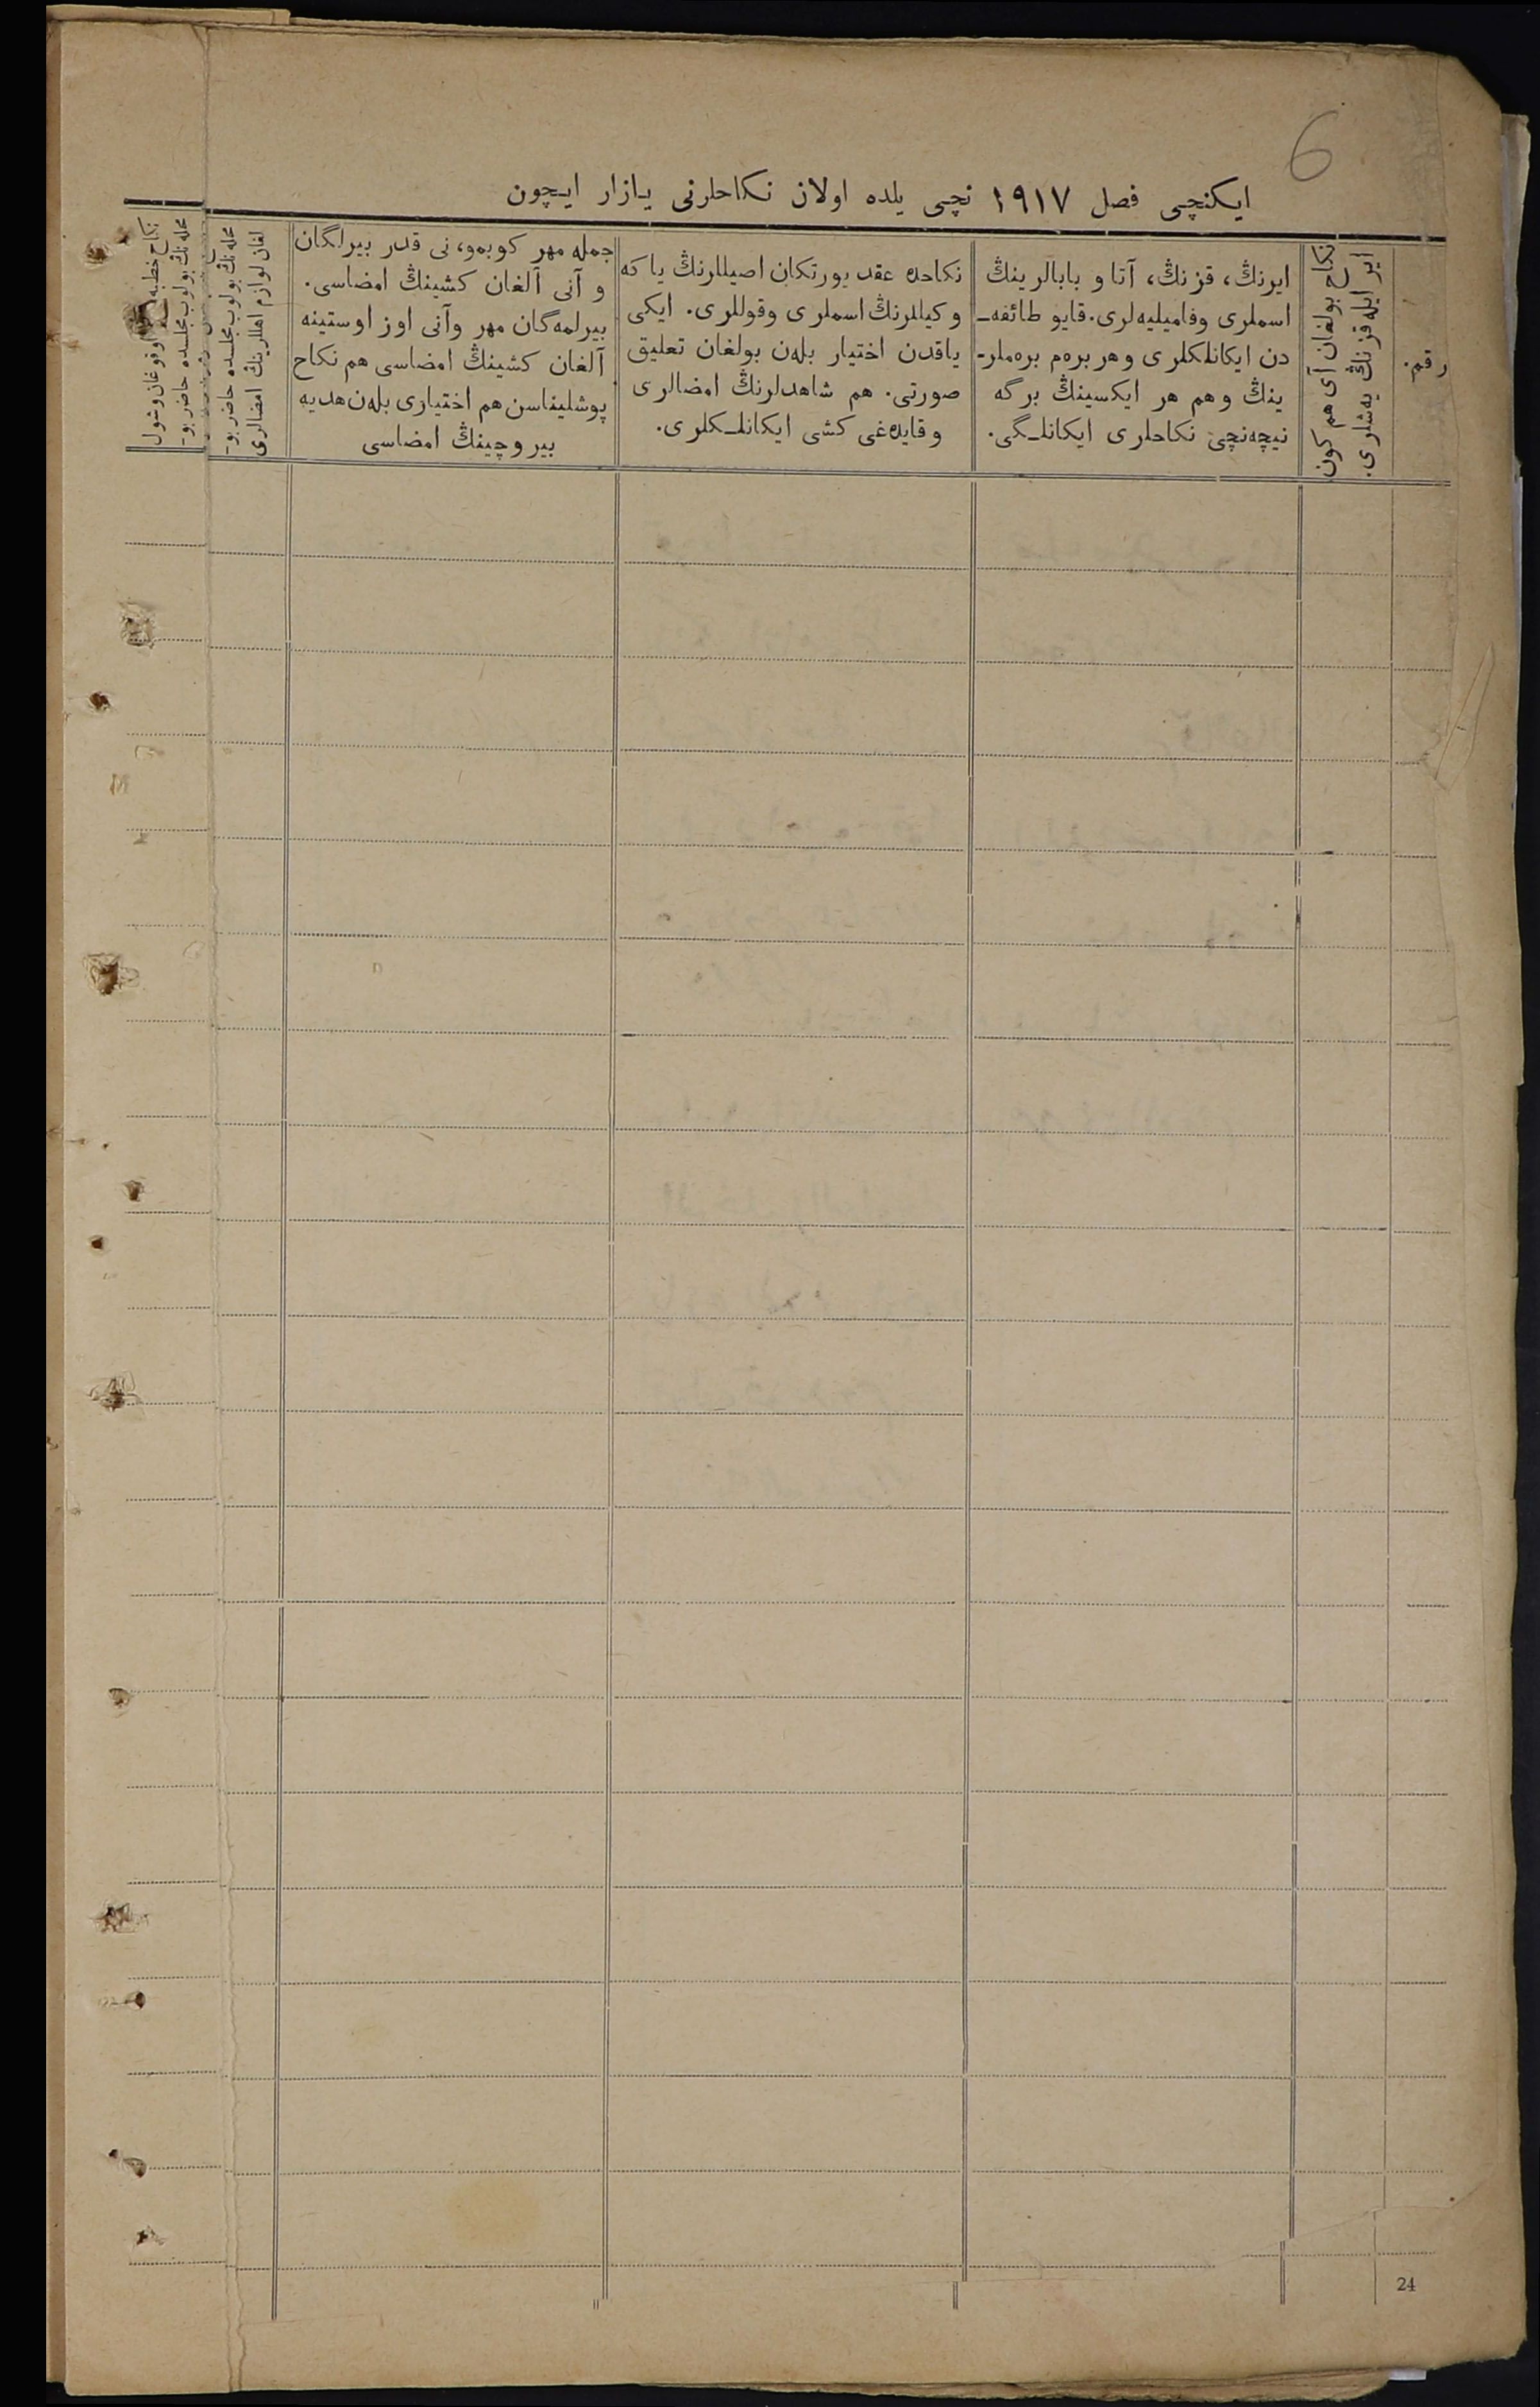 6
ایکنچی فصل ١٩١٧ نچی یلده اولان نکاحلرنی یازار ایچون
رقم.
نکاح بولغان آی هم کون
ایر ایله قزنڭ یه‌شلری.
ایرنڭ، قزنڭ، آتا و بابالرینڭ
اسملری وفامیلیه‌لری. قایو طائفه‌ـ
دن ایکانلکلری و هر بره‌م بره‌ملرـ
ینڭ و هم هر ایکسینڭ برگه
نیچه‌نچی نکاحلری ایکانلـگی.
نکاحده عقد یورتکان اصیللرنڭ یا که
وکیللرنڭ اسملری وقوللری. ایکی
یاقدن اختیار بله‌ن بولغان تعلیق
صورتی. هم شاهدلرنڭ امضالری
و قایده‌غی کشی ایکانلـکلری.
جمله مهر کوبمو، نی قدر بیرلگان
و آنی آلغان کشینڭ امضاسی.
بیرلمه‌گان مهر وآنی اوز اوستینه
آلغان کشینڭ امضاسی هم نکاح
پوشلیناسن هم اختیاری بله‌ن هدیه
بیروچینڭ امضاسی
محله‌نڭ بولوب مجلسده حاضر بوـ
لغان لوازم اهللرینڭ امضالری
نکاح خطبه اوقوغان وشول
محله‌نڭ بولوب مجلسده حاضر بوـ
24